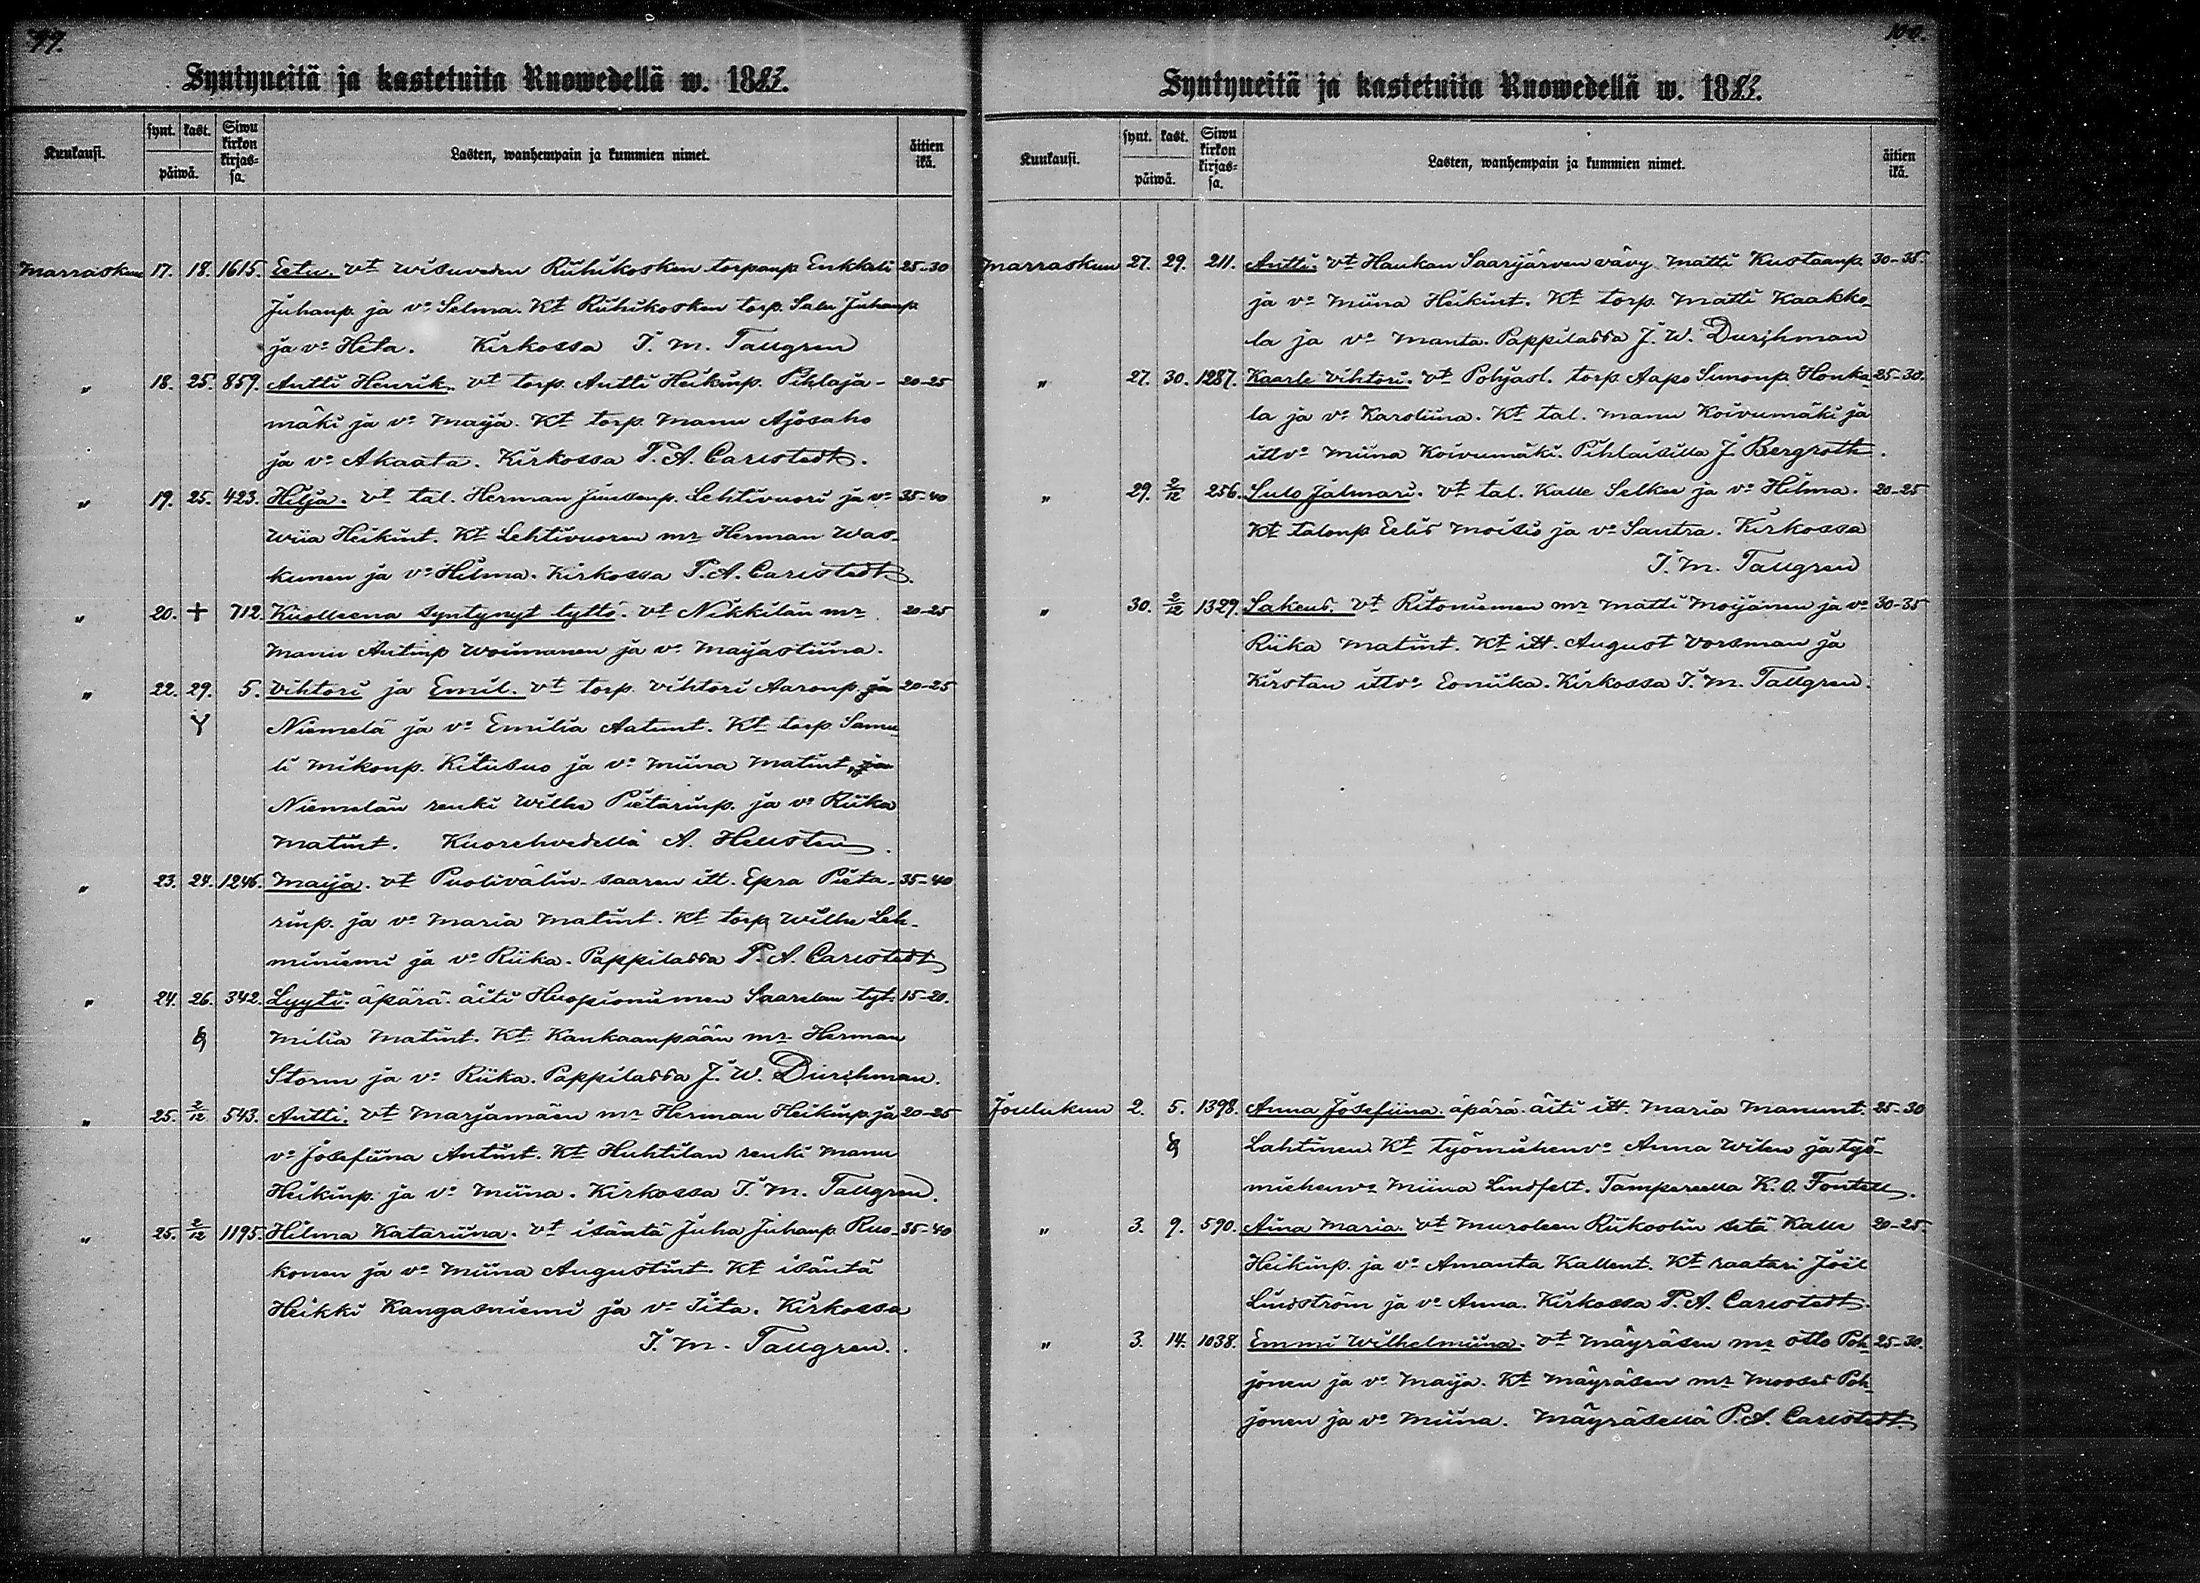 99.
Syntyneitä ja kastetuita Ruowedellä w. 1883.
Kuukausi. synt. kast. päiwä. Siwu kirkon kirjas-sa. Lasten, wanhempain ja kummien nimet. äitien ikä.
Marraskuu 17. 18. 1615. Eetu. vt Wisuveden Ruhikosken torpanp. Enkkeli 25-30
Juhanp. ja vo Selma. Kt Ruhikosken torp. Salu Juhanp.
ja vo Heta. Kirkossa T. M. Tallgren
" 18. 25. 859. Antti Henrik. vt torp. Antti Heikinp. Pihlaja- 20-25
mäki ja vo Maija. Kt torp. Manu Ajosaho
ja vo Akaata. Kirkossa P. A. Carlstedt.
" 19. 25. 423. Hilja. vt tal. Herman Juusenp. Lehtivuori ja vo 35-40
Wiia Heikint. Kt Lehtivuoren mr Herman Was-
kunen ja vo Hilma. Kirkossa P. A. Carlstedt.
" 20. + 712. Kuolleena syntynyt tyttö. vt Nikkilän mr 20-25
Manu Antinp. Woimanen ja vo Maijastiina.
" 22. 29. 5. Vihtori ja Emil. vt torp. Vihtori Aaronp. ja 20-25
Y Niemelä ja vo Emilia Aatunt. Kt torp. Samu
li Mikonp. Kitusuo ja vo Miina Matint, ja
Niemelän renki Wille Pietarinp. ja vo Riika
Matint. Kuorehvedellä A. Hellsten.
" 23. 24. 1246. Maija. vt Puolivälin-saaren itt. Epra Pieta- 35-40
rinp. ja vo Maria Matint. Kt torp. Wille Leh-
miniemi ja vo Riika. Pappilassa P. A. Carlstedt
" 24. 26. 342. Lyyti. äpärä. äiti Huopionimen Saarelan tyt. 15-20.
Milia Matint. Kt Kankaanpään mr Herman
Storm ja vo Riika. Pappilassa J. W. Durchman.
" 25. 2/12 543. Antti. vt Marjamäen mr Herman Heikinp. ja 20-25
vo Josefiina Antint. Kt Huhtilan renki Manu
Heikinp. ja vo Miina. Kirkossa T. M. Tallgren.
" 25. 2/12 1195. Hilma Katariina. vt isäntä Juha Juhanp. Ruo- 35-40
konen ja vo Miina Augustint. Kt isäntä
Heikki Kangasniemi ja vo Tita. Kirkossa
T. M. Tallgren.
100.
Syntyneitä ja kastetuita Ruowedellä w. 1883.
Kuukausi. synt. kast. päiwä. Siwu kirkon kirjas-sa. Lasten, wanhempain ja kummien nimet. äitien ikä.
Marraskuu 27. 29. 211. Antti. vt Haukan Saarijärven vävy Matti Kustaanp. 30-35.
ja vo Miina Heikint. Kt torp. Matti Kaakko-
la ja vo Manta. Pappilassa J. W. Durchman
" 27. 30. 1287. Kaarle Vihtori. vt Pohjasl. torp. Aapo Simonp. Honka- 25-30.
la ja vo Karoliina. Kt tal. Manu Koivumäki ja
itlvo Miina Koivumäki. Pihlaisilla J. Bergroth.
" 29. 2/12 256. Sulo Jalmari. vt tal. Kalle Selkee ja vo Hilma. 20-25
Kt talonp. Eelis Moisio ja vo Santra. Kirkossa
T. M. Tallgren
" 30. 2/12 1329. Sakeus. vt Ritoniemen mr Matti Moijanen ja vo 30-35
Riika Matint. Kt itt. August Vorsman ja
Kirstan itlvo Eoniika. Kirkossa T. M. Tallgren.
Joulukuu 2. 5. 1398. Anna Josefiina. äpärä. äiti itt. Maria Manunt. 25-30
Lahtinen. Kt työmiehenvo Anna Wilen ja työ-
miehenvo Miina Lindfelt. Tampereella K. O. Fontell.
" 3. 9. 590. Aina Maria. vt Muroleen Riikoolin setä Kalle 20-25.
Heikinp. ja vo Amanta Kallent. Kt raatari Joél
Lindström ja vo Anna. Kirkossa P. A. Carlstedt.
" 3. 14. 1038. Emmi Wilhelmiina. vt Mäyräsen mr Otto Poh- 25-30.
jonen ja vo Maija. Kt Mäyräsen mr Mooses Poh-
jonen ja vo Miina. Mäyräsellä P. A. Carlstedt.